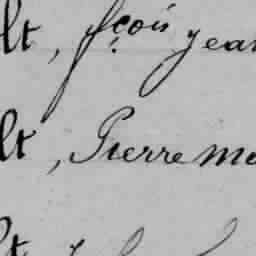 lt, fçois jean
lt, Pierre Ma